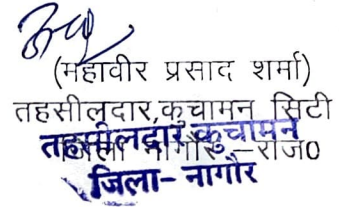 (महावीर प्रसाद शर्मा)
तहसीलदार,कुचामन सिटी
जिला नागौर-राज0
तहसीलदार कुचामन
जिला- नागौर